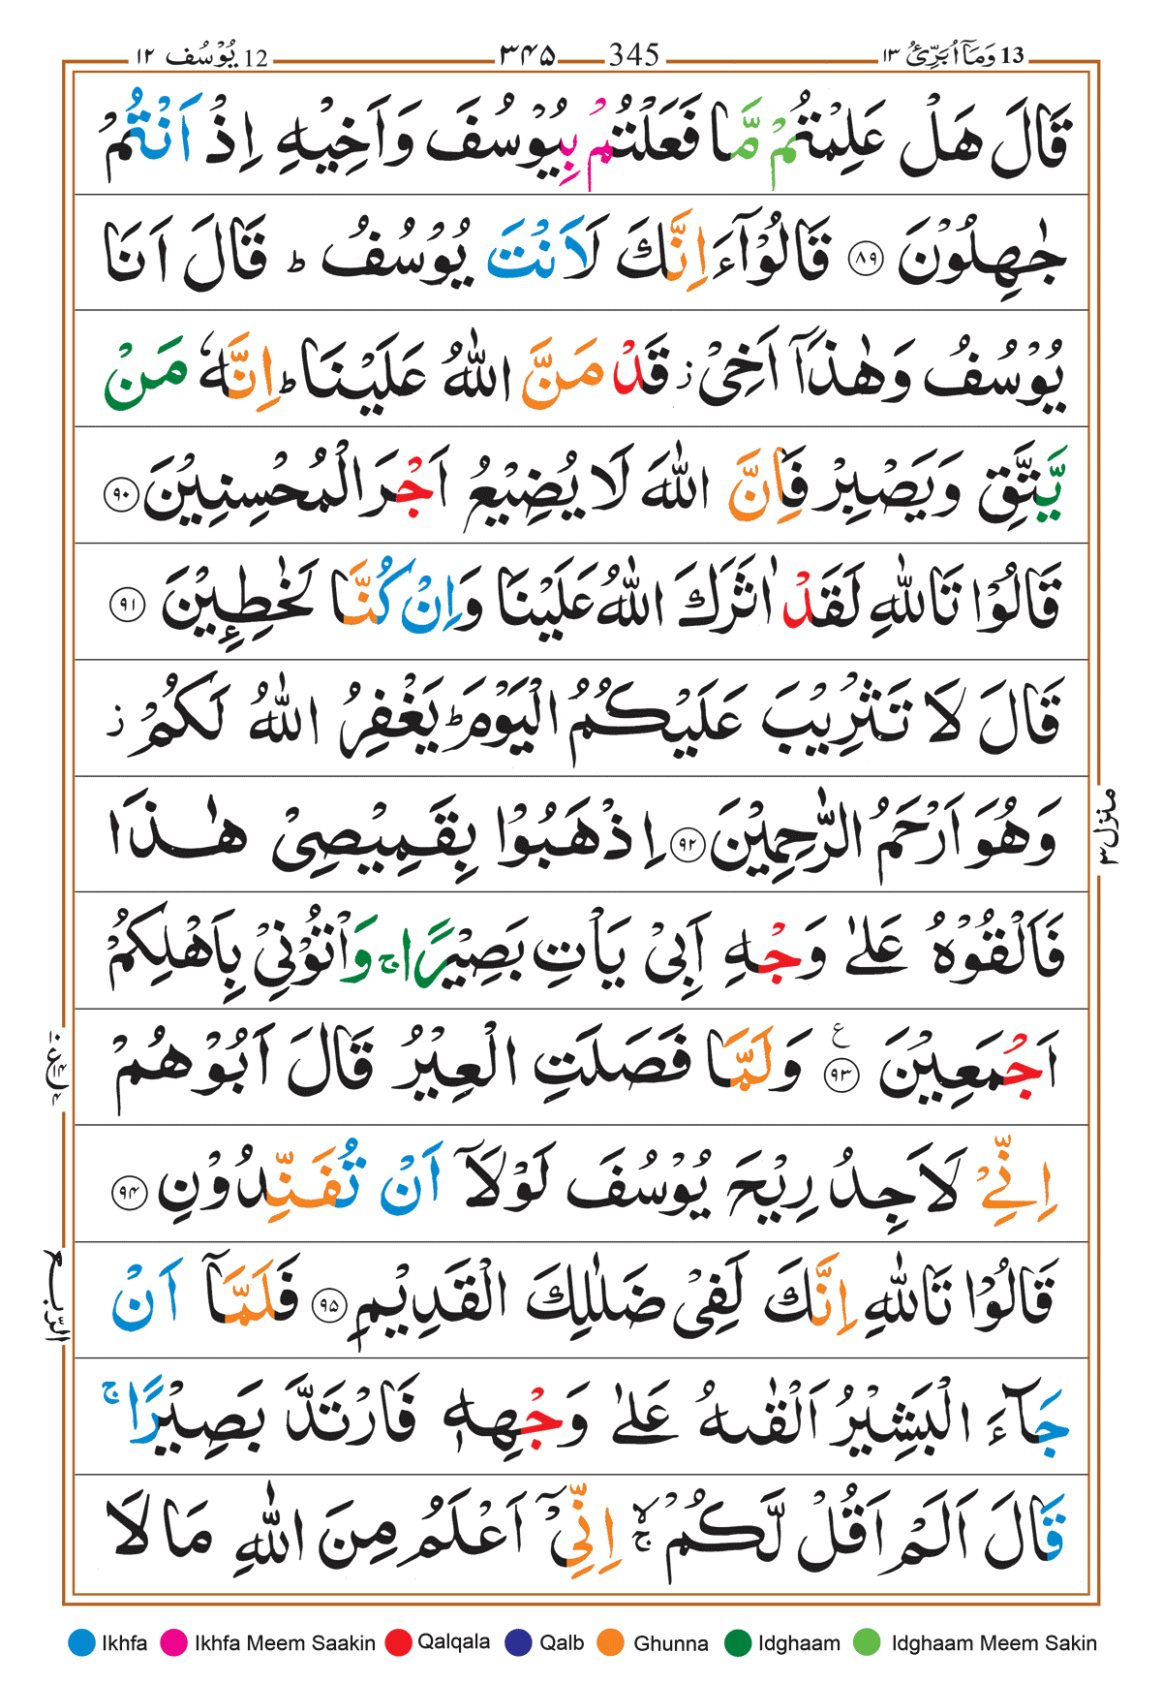 12 يُوْسُف ١٢ ٣٤٥ 345 13 وَمَآ اُبَرِّئُ ١٣
قَالَ هَلْ عَلِمْتُمْ مَّا فَعَلْتُمْ بِيُوْسُفَ وَاَخِيْهِ اِذْ اَنْتُمْ
جٰهِلُوْنَ ﴿٨٩﴾ قَالُوْٓا ءَاِنَّكَ لَاَنْتَ يُوْسُفُ ؕ قَالَ اَنَا
يُوْسُفُ وَهٰذَآ اَخِيْ ز قَدْ مَنَّ اللّٰهُ عَلَيْنَا ؕ اِنَّهٗ مَنْ
يَّتَّقِ وَيَصْبِرْ فَاِنَّ اللّٰهَ لَا يُضِيْعُ اَجْرَ الْمُحْسِنِيْنَ ﴿٩٠﴾
قَالُوْا تَاللّٰهِ لَقَدْ اٰثَرَكَ اللّٰهُ عَلَيْنَا وَاِنْ كُنَّا لَخٰطِـِٕيْنَ ﴿٩١﴾
قَالَ لَا تَثْرِيْبَ عَلَيْكُمُ الْيَوْمَ ؕ يَغْفِرُ اللّٰهُ لَكُمْ ز
وَهُوَ اَرْحَمُ الرّٰحِمِيْنَ ﴿٩٢﴾ اِذْهَبُوْا بِقَمِيْصِيْ هٰذَا
فَاَلْقُوْهُ عَلٰى وَجْهِ اَبِيْ يَاْتِ بَصِيْرًا ۚ وَاْتُوْنِيْ بِاَهْلِكُمْ
اَجْمَعِيْنَ ﴿٩٣﴾ ع وَلَمَّا فَصَلَتِ الْعِيْرُ قَالَ اَبُوْهُمْ
اِنِّيْ لَاَجِدُ رِيْحَ يُوْسُفَ لَوْلَآ اَنْ تُفَنِّدُوْنِ ﴿٩٤﴾
قَالُوْا تَاللّٰهِ اِنَّكَ لَفِيْ ضَلٰلِكَ الْقَدِيْمِ ﴿٩٥﴾ فَلَمَّآ اَنْ
جَآءَ الْبَشِيْرُ اَلْقٰىهُ عَلٰى وَجْهِهٖ فَارْتَدَّ بَصِيْرًا ۚ
قَالَ اَلَمْ اَقُلْ لَّكُمْ ۙۚ اِنِّيْٓ اَعْلَمُ مِنَ اللّٰهِ مَا لَا
منزل ٣
الرّبع
Ikhfa Ikhfa Meem Saakin Qalqala Qalb Ghunna Idghaam Idghaam Meem Sakin